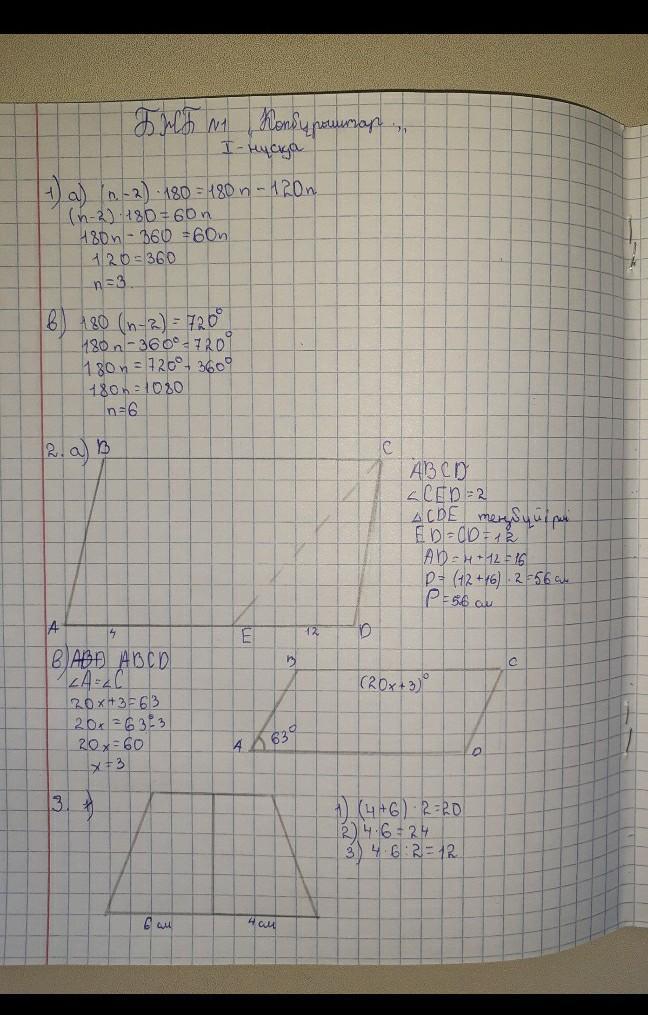 БЖБ №1 „Көпбұрыштар„
I-нұсқа
1) а) (n-2)·180=180n-120n
(n-2)·180=60n
180n-360=60n
120=360
n=3.
в) 180(n-2)=720°
180n-360°=720°
180n=720°+360°
180n=1080
n=6
2. а) B
C
A
4
E
12
D
ABCD
∠CED=2
△CDE теңбүйірлі
ED=CD=12
AD=4+12=16
D=(12+16)·2=56 см
P=56 см
в) ABCD
∠A=∠C
20x+3=63
20x=63-3
20x=60
x=3
B
C
(20x+3)°
A
63°
D
3.
6 см
4 см
1) (4+6)·2=20
2) 4·6=24
3) 4·6:2=12